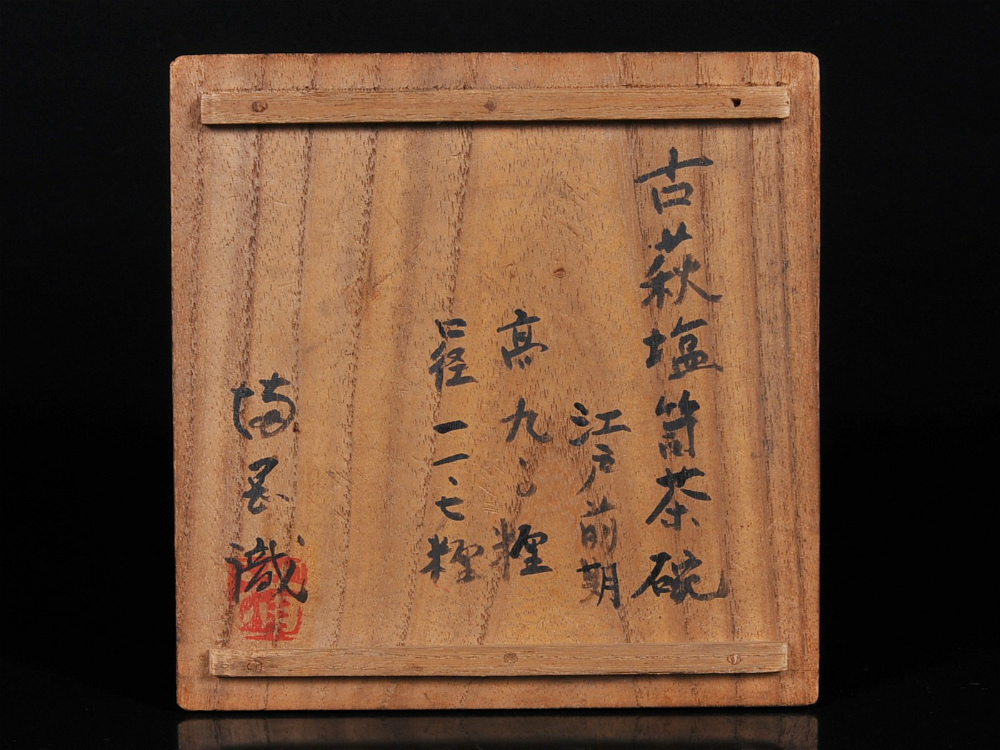 古萩塩笥茶碗
江戸前期
高 九、糎
口径 一一、七糎
満岡識